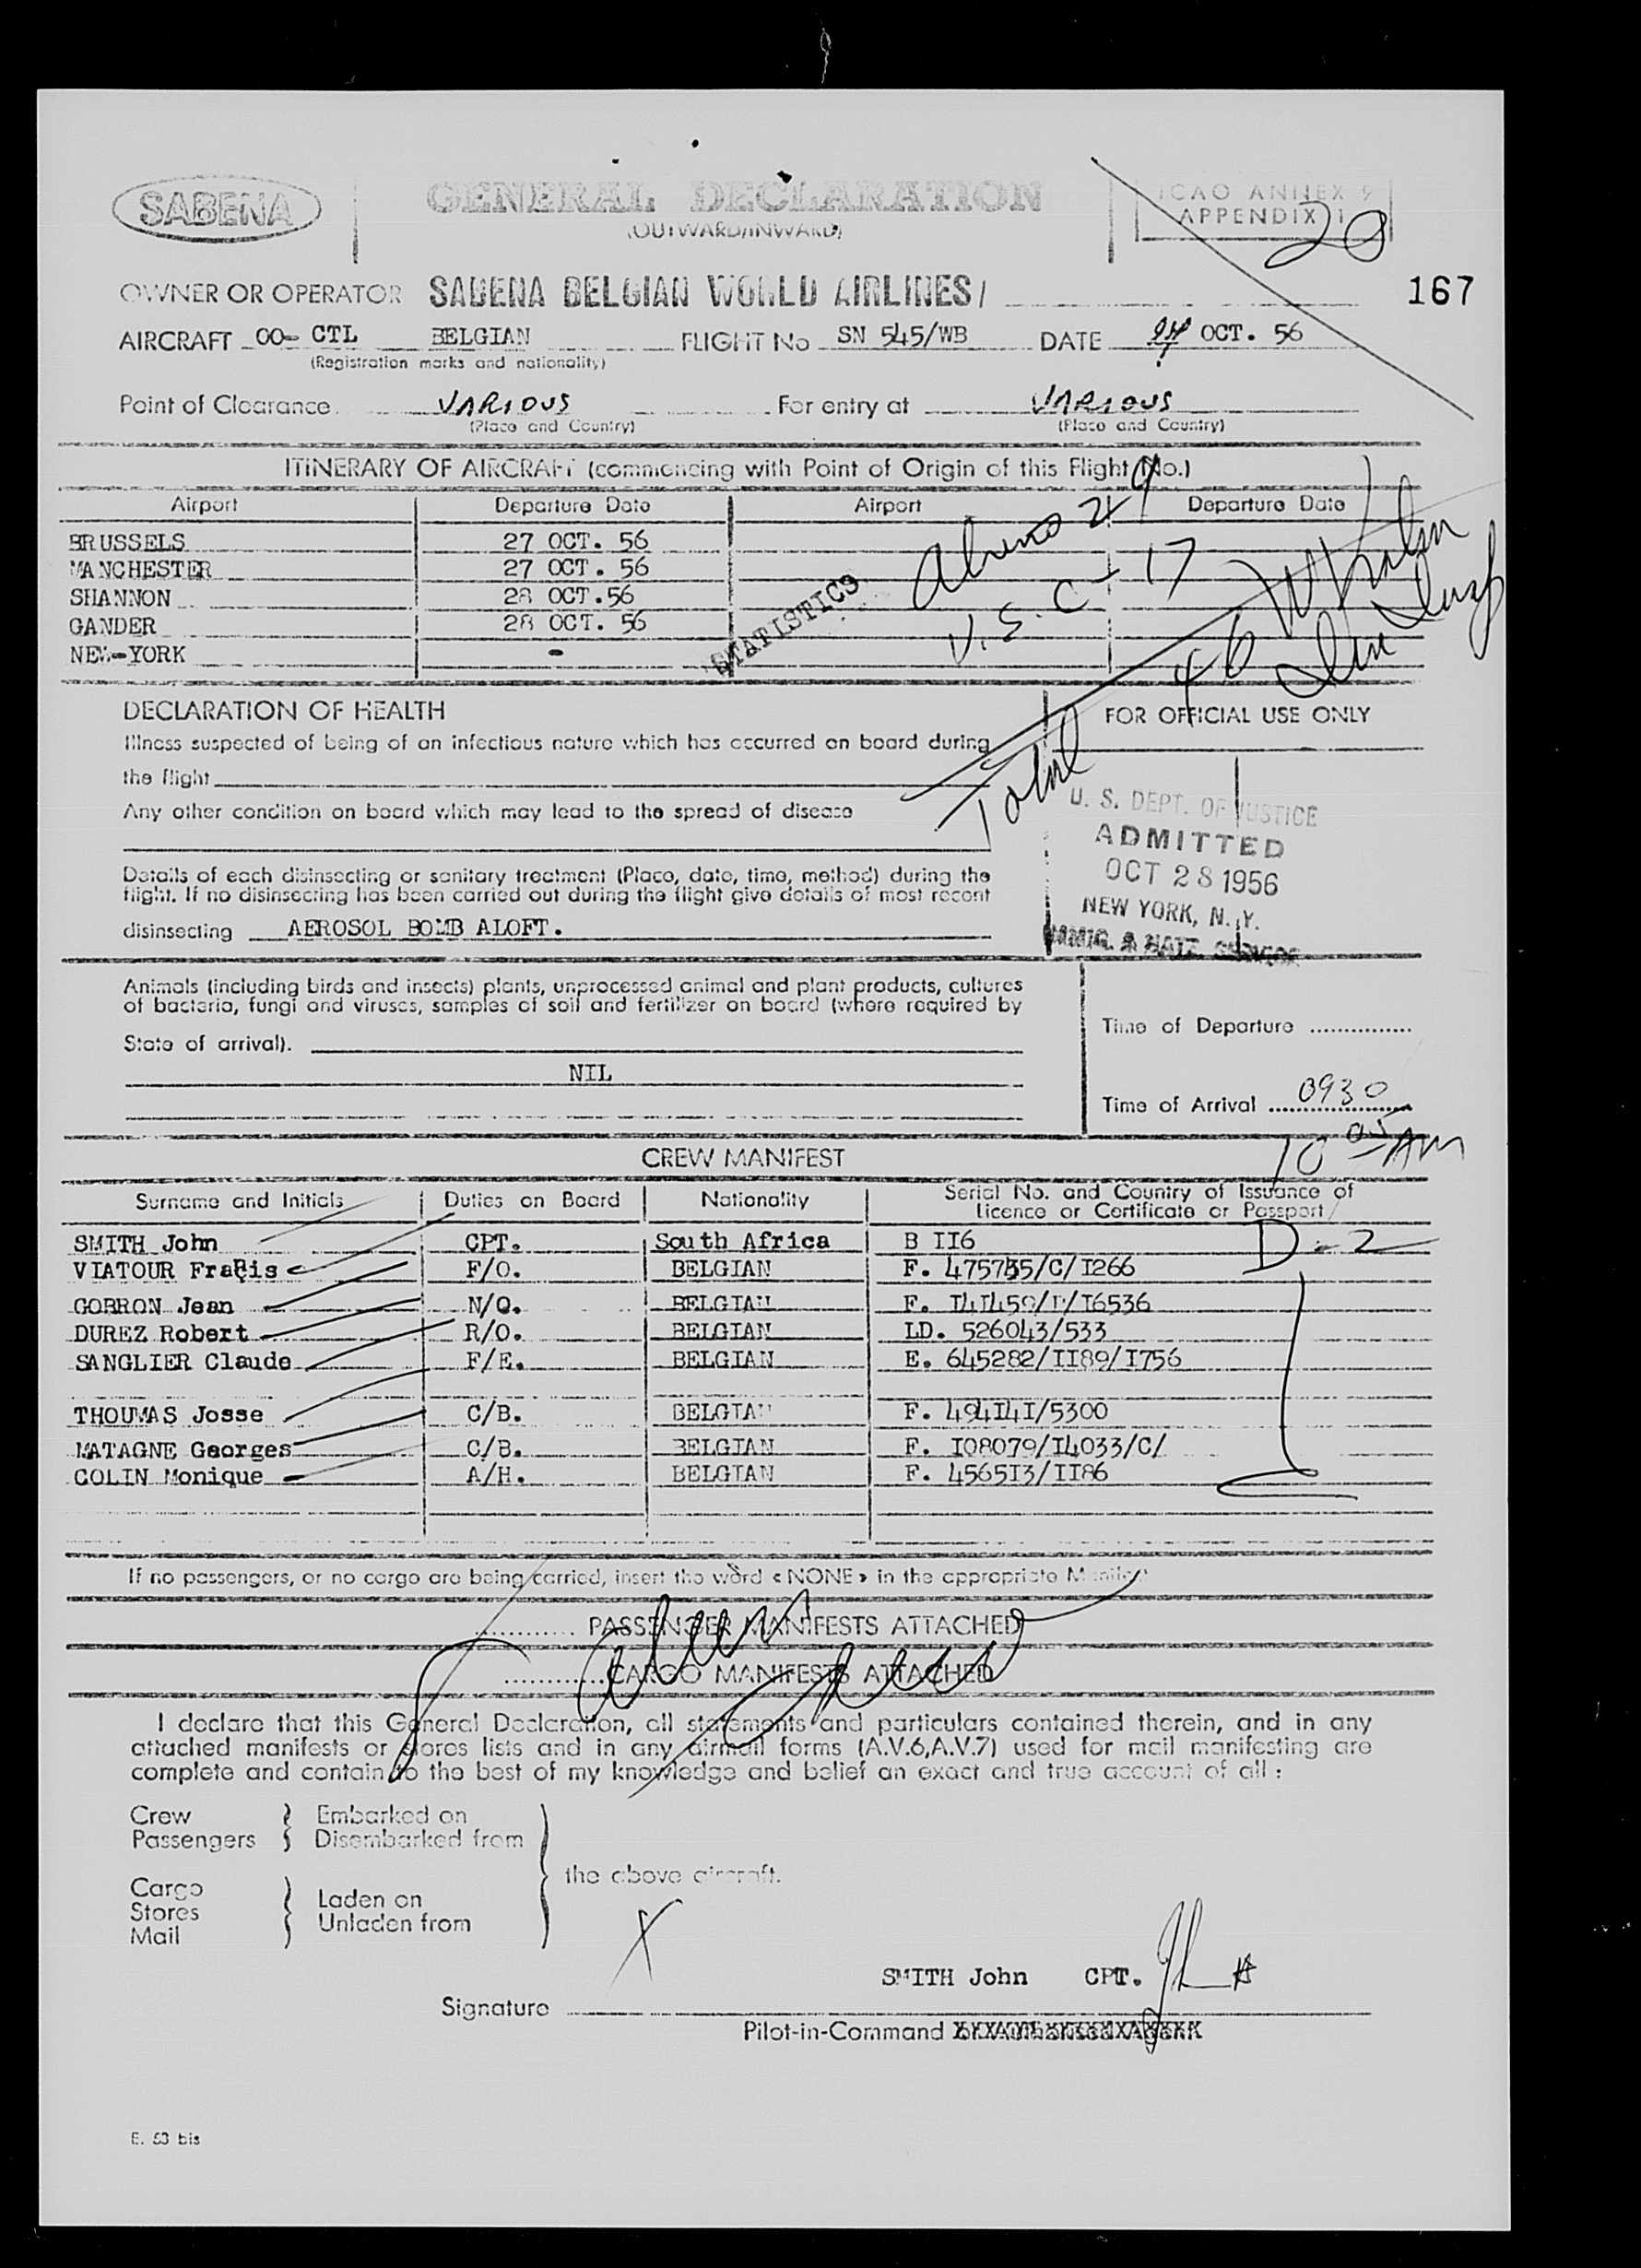 SABENA
GENERAL DECLARATION
(OUTWARD/INWARD)
ICAO ANNEX 9
APPENDIX 1
28
OWNER OR OPERATOR SABENA BELGIAN WORLD AIRLINES/
167
AIRCRAFT OO- CTL BELGIAN FLIGHT No SN 545/WB DATE OCT. 56
(Registration marks and nationality)
Point of Clearance VARIOUS For entry at VARIOUS
(Place and Country) (Place and Country)
ITINERARY OF AIRCRAFT (commencing with Point of Origin of this Flight No.)
Airport Departure Date Airport Departure Date
BRUSSELS 27 OCT. 56
MANCHESTER 27 OCT. 56
SHANNON 28 OCT.56
GANDER 28 OCT. 56
NEW-YORK -
STATISTICS
Aliens 29
U.S.C - 17
Total 46
DECLARATION OF HEALTH
FOR OFFICIAL USE ONLY
Illness suspected of being of an infectious nature which has occurred on board during
the flight
Any other condition on board which may lead to the spread of disease
U. S. DEPT. OF JUSTICE
ADMITTED
OCT 28 1956
NEW YORK, N. Y.
IMMIG. & NATZ. SERVICE
Details of each disinsecting or sanitary treatment (Place, date, time, method) during the
flight. If no disinsecting has been carried out during the flight give details of most recent
disinsecting AEROSOL BOMB ALOFT.
Animals (including birds and insects) plants, unprocessed animal and plant products, cultures
of bacteria, fungi and viruses, samples of soil and fertilizer on board (where required by
State of arrival).
NIL
Time of Departure ...............
Time of Arrival 0930
10 05 AM
CREW MANIFEST
Surname and Initials Duties on Board Nationality Serial No. and Country of Issuance of
Licence or Certificate or Passport
SMITH John CPT. South Africa B II6 D-2
VIATOUR Francis F/O. BELGIAN F. 475745/C/I266
GOBRON Jean N/O. BELGIAN F. I4I459/P/I6536
DUREZ Robert R/O. BELGIAN LD. 526043/533
SANGLIER Claude F/E. BELGIAN E. 645282/II89/I756
THOUMAS Josse C/B. BELGIAN F. 494I4I/5300
MATAGNE Georges C/B. BELGIAN F. I08079/I4033/C/
COLIN Monique A/H. BELGIAN F. 4565I3/II86
If no passengers, or no cargo are being carried, insert the word «NONE» in the appropriate Manifest
............ PASSENGER MANIFESTS ATTACHED
............ CARGO MANIFESTS ATTACHED
I declare that this General Declaration, all statements and particulars contained therein, and in any
attached manifests or stores lists and in any airmail forms (A.V.6,A.V.7) used for mail manifesting are
complete and contain to the best of my knowledge and belief an exact and true account of all :
Crew Embarked on
Passengers Disembarked from
the above aircraft.
Cargo
Stores Laden on
Mail Unladen from
X
SMITH John CPT.
Signature
Pilot-in-Command
E. 53 bis